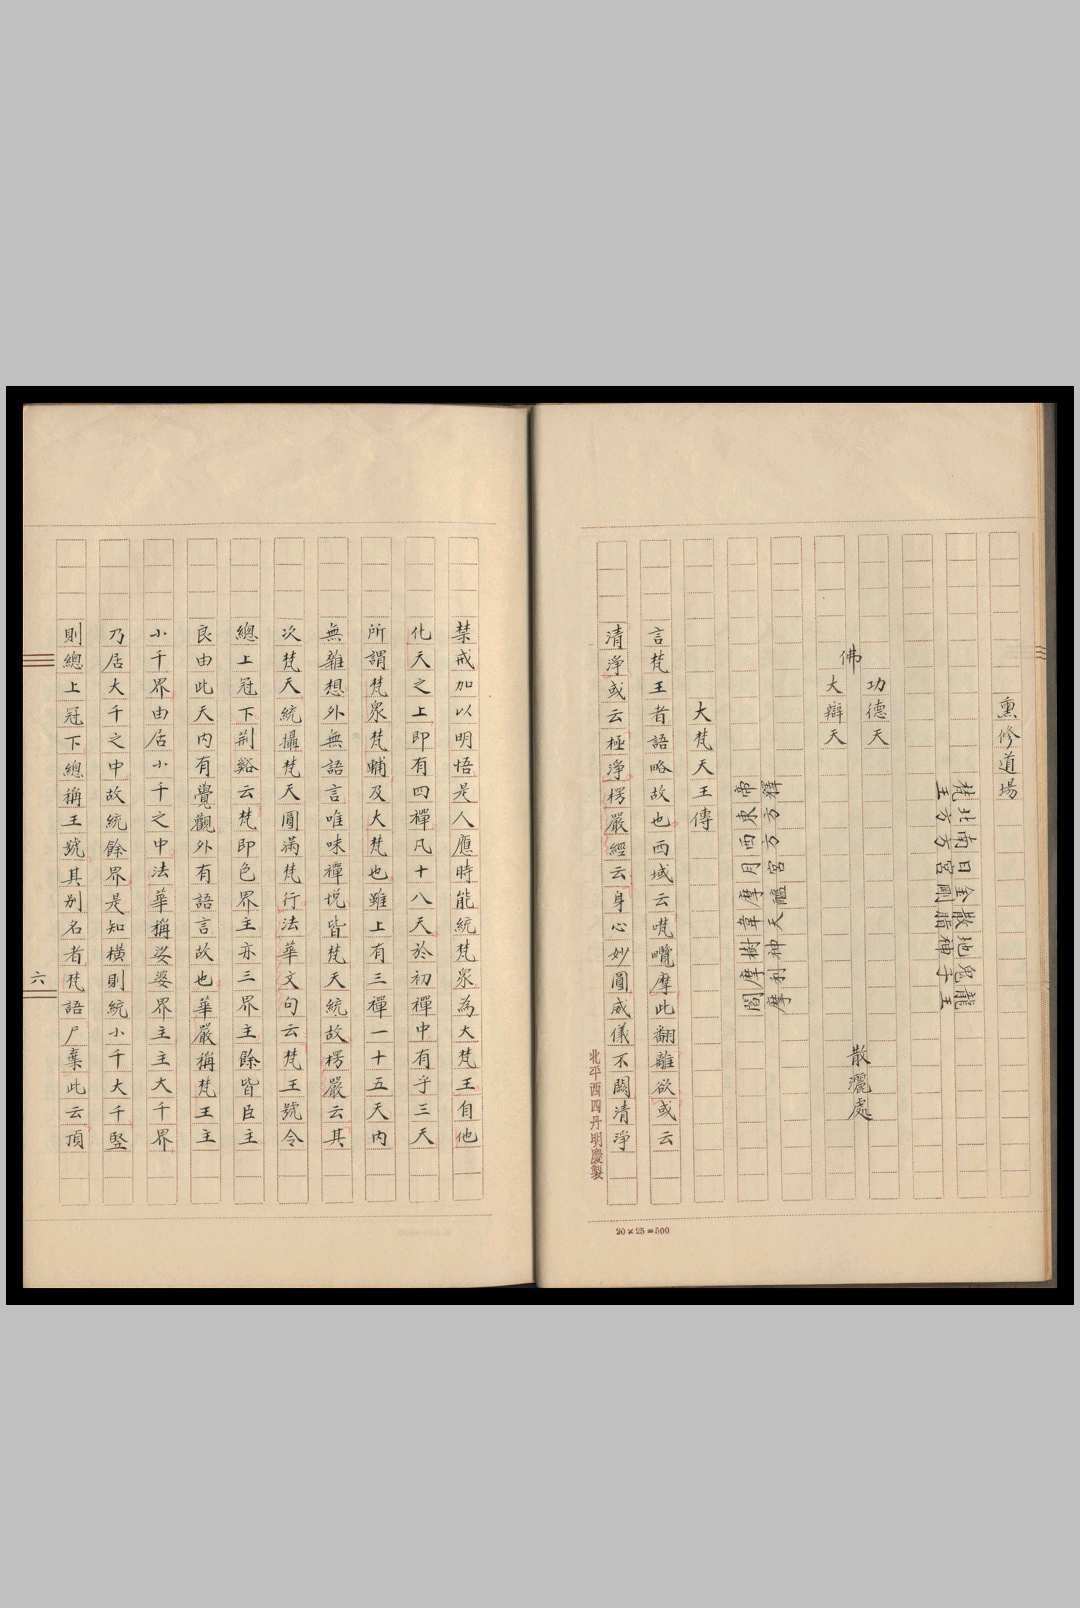 熏修道場
梵王
北方
南方
日宮
金剛
散脂
地神
鬼子
龍王
功德天
佛
大辯天
散灑處
釋帝
東方
西方
月宮
摩醯
韋天
樹神
摩利
閻摩
大梵天王傳
言梵王者語略故也西域云梵㘕摩此翻離欲或云
清淨或云極淨楞嚴經云身心妙圓威儀不闕清淨
北平西四丹明慶製
20×25=500
禁戒加以明悟是人應時能統梵眾為大梵王自他
化天之上即有四禪凡十八天於初禪中有乎三天
所謂梵眾梵輔及大梵也雖上有三禪一十五天內
無雜想外無語言唯味禪悅皆梵天統故楞嚴云其
次梵天統攝梵天圓滿梵行法華文句云梵王號令
總上冠下荊谿云梵即色界主亦三界主餘皆臣主
良由此天內有覺觀外有語言故也華嚴稱梵王主
小千界由居小千之中法華稱娑婆界主主大千界
乃居大千之中故統餘界是知橫則統小千大千竪
則總上冠下總稱王號其別名者梵語尸棄此云頂
六